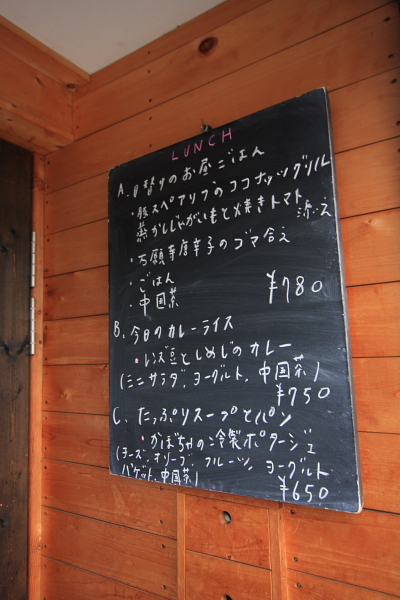 LUNCH
A. 日替りのお昼ごはん
・豚スペアリブのココナッツグリル
蒸かしじゃがいもと焼きトマト添え
・万願寺唐辛子のゴマ合え
・ごはん
・中国茶 ¥780
B. 今日のカレーライス
・レンズ豆としめじのカレー
(ミニサラダ、ヨーグルト、中国茶)
¥750
C. たっぷりスープとパン
・かぼちゃの冷製ポタージュ
(チーズ、オリーブ、フルーツ、ヨーグルト
バゲット、中国茶)
¥650